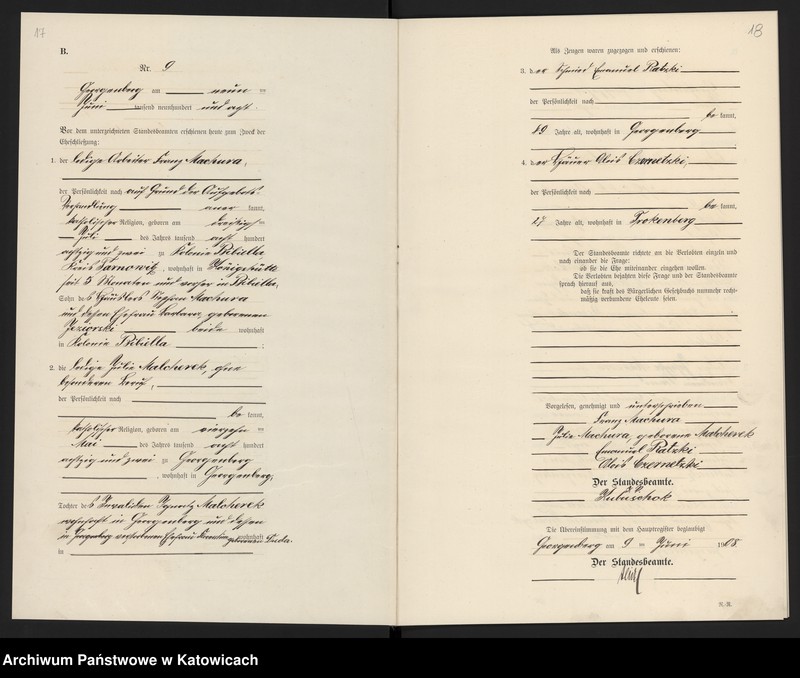 17
B.
Nr. 9
Georgenberg am neun ten
Juni tausend neunhundert und acht.
Vor dem unterzeichneten Standesbeamten erschienen heute zum Zweck der
Eheschließung:
1. der ledige Arbeiter Franz Machura,
der Persönlichkeit nach auf Grund der Aufgebots-
verhandlung aner kannt,
katholischer Religion, geboren am
Juli des Jahres tausend acht hundert
achtzig und zwei zu Kolonie Bibiella
Kreis Tarnowitz, wohnhaft in Königshütte
seit 5 Monaten und vorher in Bibiella,
Sohn des Häuslers Machura
und dessen Ehefrau Barbara, geborenen
Jeziorski beide wohnhaft
in Kolonie Bibiella ;
2. die ledige Julie Malcherek, ohne
besonderen Beruf,
der Persönlichkeit nach
be kannt,
katholischer Religion, geboren am vierzehn ten
Mai des Jahres tausend acht hundert
achtzig und zwei zu Georgenberg
, wohnhaft in Georgenberg,
Tochter des Invaliden Ignatz Malcherek
wohnhaft in Georgenberg und dessen
in Georgenberg verstorbenen Ehefrau geborenen wohnhaft
in
18
Als Zeugen waren zugezogen und erschienen:
3. der Schmied Emanuel Ratzki
der Persönlichkeit nach
be kannt,
Jahre alt, wohnhaft in Georgenberg
4. der Häuer Alois Czernetzki,
der Persönlichkeit nach
be kannt,
27 Jahre alt, wohnhaft in Trokenberg
Der Standesbeamte richtete an die Verlobten einzeln und
nach einander die Frage:
ob sie die Ehe miteinander eingehen wollen.
Die Verlobten bejahten diese Frage und der Standesbeamte
sprach hierauf aus,
daß sie kraft des Bürgerlichen Gesetzbuchs nunmehr recht-
mäßig verbundene Eheleute seien.
Vorgelesen, genehmigt und unterschrieben
Franz Machura
Julie Machura, geborene Malcherek
Emanuel Ratzki
Alois Czernetzki
Der Standesbeamte.
Kubuschok
Die Übereinstimmung mit dem Hauptregister beglaubigt
Georgenberg am 9 ten Juni 1908
Der Standesbeamte.
Archiwum Państwowe w Katowicach